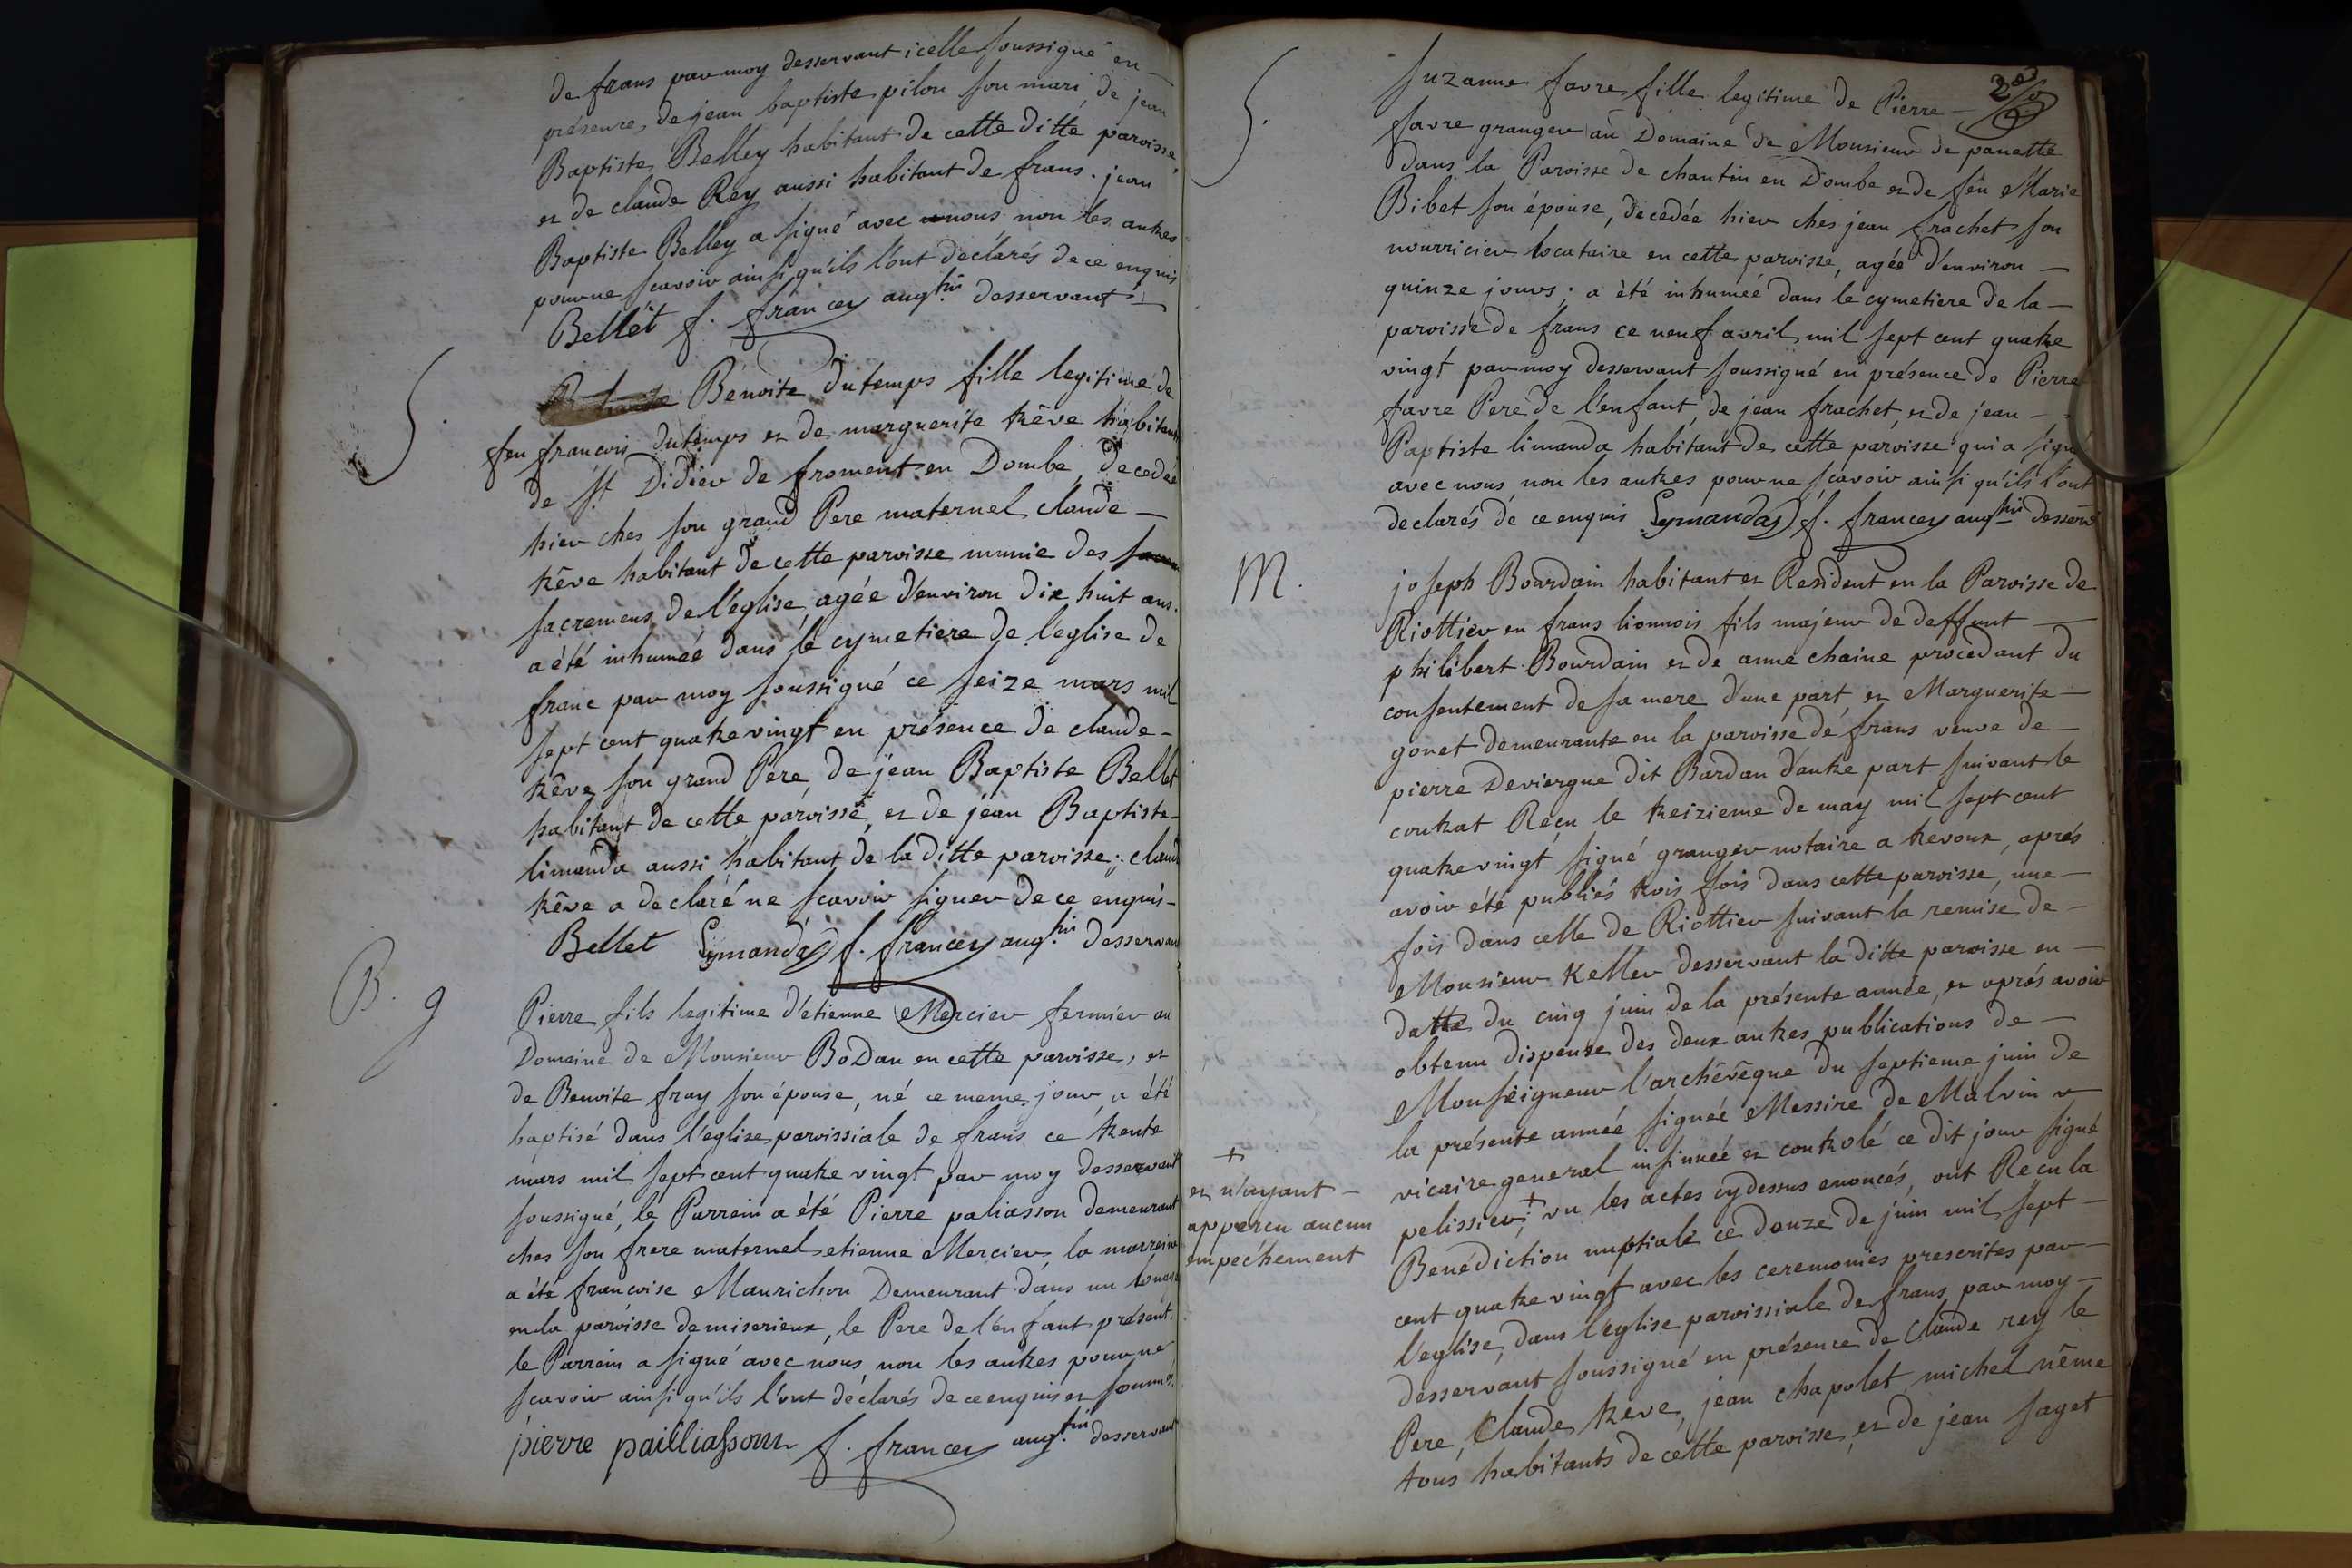 de frans par moy desservant icelle soussigné en
présence de jean baptiste pilon son mari de jean
Baptiste Belley habitant de cette ditte paroisse
et de claude Rey aussi habitant de frans. jean
Baptiste Belley a signé avec nous non les autres
pour ne scavoir ainsi qu'ils l'ont declarés de ce enquis
Bellet f. francey aug.tin desservant
S.
Benoite Dutemps fille legitime de
feu francois dutemps et de marguerite trêve habitants
de St. Didier de froment en Dombe, decedée
hier ches son grand Pere maternel claude
trêve habitant de cette paroisse munie des
sacremens de l'eglise, agée d'environ dix huit ans.
a été inhumée dans le cymetiere de l'eglise de
franc par moy soussigné ce seize mars mil
sept cent quatre vingt en présence de claude
trêve son grand Pere, de jean Baptiste Bellet
habitant de cette paroisse, et de jean Baptiste
limanda aussi habitant de la ditte paroisse; claude
trêve a declaré ne scavoir signer de ce enquis
Bellet Lymanda f. francey aug.tin desservant
B. 9
Pierre fils legitime d'etienne Mercier fermier au
Domaine de Monsieur BoDan en cette paroisse, et
de Benoite fray son épouse, né ce meme jour a été
baptisé dans l'eglise paroissiale de frans ce trente
mars mil sept cent quatre vingt par moy desservant
soussigné, le Parrein a été Pierre paliasson demeurant
ches son frere maternel etienne Mercier la marreine
a été francoise Maurichon Demeurant dans un
en la paroisse de miserieux, le Pere de l'enfant présent.
le Parrein a signé avec nous non les autres pour ne
scavoir ainsi qu'ils l'ont déclarés de ce enquis et sommés.
pierre pailliassom f. francey aug.tin desservant
S.
Suzanne favre fille legitime de Pierre
favre granger au Domaine de Monsieur de panette
dans la Paroisse de chantin en Dombe et de feu Marie
Bibet son épouse, decedée hier ches jean frachet son
nourricier locataire en cette paroisse, agée d'environ
quinze jours; a été inhumée dans le cymetiere de la
paroisse de frans ce neuf avril mil sept cent quatre
vingt par moy desservant soussigné en présence de Pierre
favre Pere de l'enfant, de jean frachet et de jean
Baptiste limanda habitant de cette paroisse qui a signé
avec nous non les autres pour ne scavoir ainsi qu'ils l'ont
declarés de ce enquis Lymanda f. francey aug.tin desserv.t
M.
joseph Bourdain habitant et Resident en la Paroisse de
Riottier en frans lionnois fils majeur de deffunt
philibert Bourdain et de anne chaine procedant du
consentement de sa mere d'une part, et Marguerite
gonet demeurante en la paroisse de frans veuve de
pierre Deviergue dit Bardan d'autre part suivant le
contrat Recu le treizieme de may mil sept cent
quatre vingt signé granger notaire a trevoux, aprés
avoir été publiés trois fois dans cette paroisse, une
fois dans celle de Riottier suivant la remise de
Monsieur Keller desservant la ditte paroisse en
datte du cinq juin de la présente année, et aprés avoir
obtenu dispense des deux autres publications de
Monseigneur l'archêvêque du septieme juin de
la présente année signée Messire de Malvin
vicaire general insinuée et controlé ce dit jour signé
pelissier; + vu les actes cydessus enoncés, ont Recu la
+
et n'ayant
apperçu aucun
empéchement
Benédiction nuptiale ce douze de juin mil sept
cent quatre vingt avec les ceremonies prescrites par
l'eglise, dans l'eglise paroissiale de frans par moy
desservant soussigné en présence de Claude rey le
Pere, Claude treve, jean chapolet, michel nême
tous habitants de cette paroisse, et de jean saget